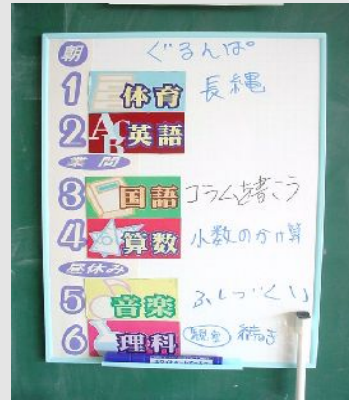 朝 ぐるんぱ
1 体育 長縄
2 ABC 英語
業間
3 国語 コラムを書こう
4 算数 小数のかけ算
昼休み
5 音楽 ふしづくり
6 理科